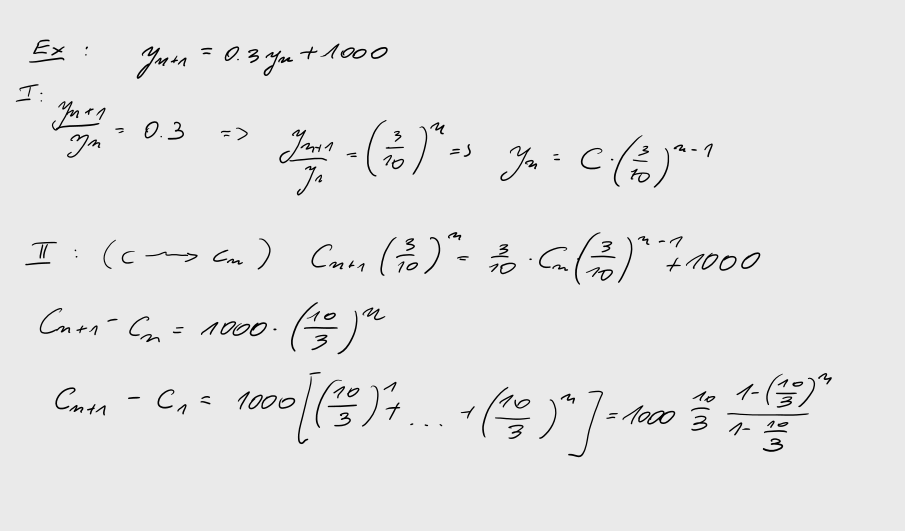 Ex : y_{n+1} = 0.3 y_n + 1000
I:
\frac{y_{n+1}}{y_n} = 0.3 => \frac{y_{n+1}}{y_1} = (\frac{3}{10})^n => y_n = C · (\frac{3}{10})^{n-1}
II : (C → C_n) C_{n+1} (\frac{3}{10})^n = \frac{3}{10} · C_n (\frac{3}{10})^{n-1} + 1000
C_{n+1} - C_n = 1000 · (\frac{10}{3})^n
C_{n+1} - C_1 = 1000 [(\frac{10}{3})^1 + ... + (\frac{10}{3})^n] = 1000 \frac{10}{3} \frac{1-(\frac{10}{3})^n}{1-\frac{10}{3}}